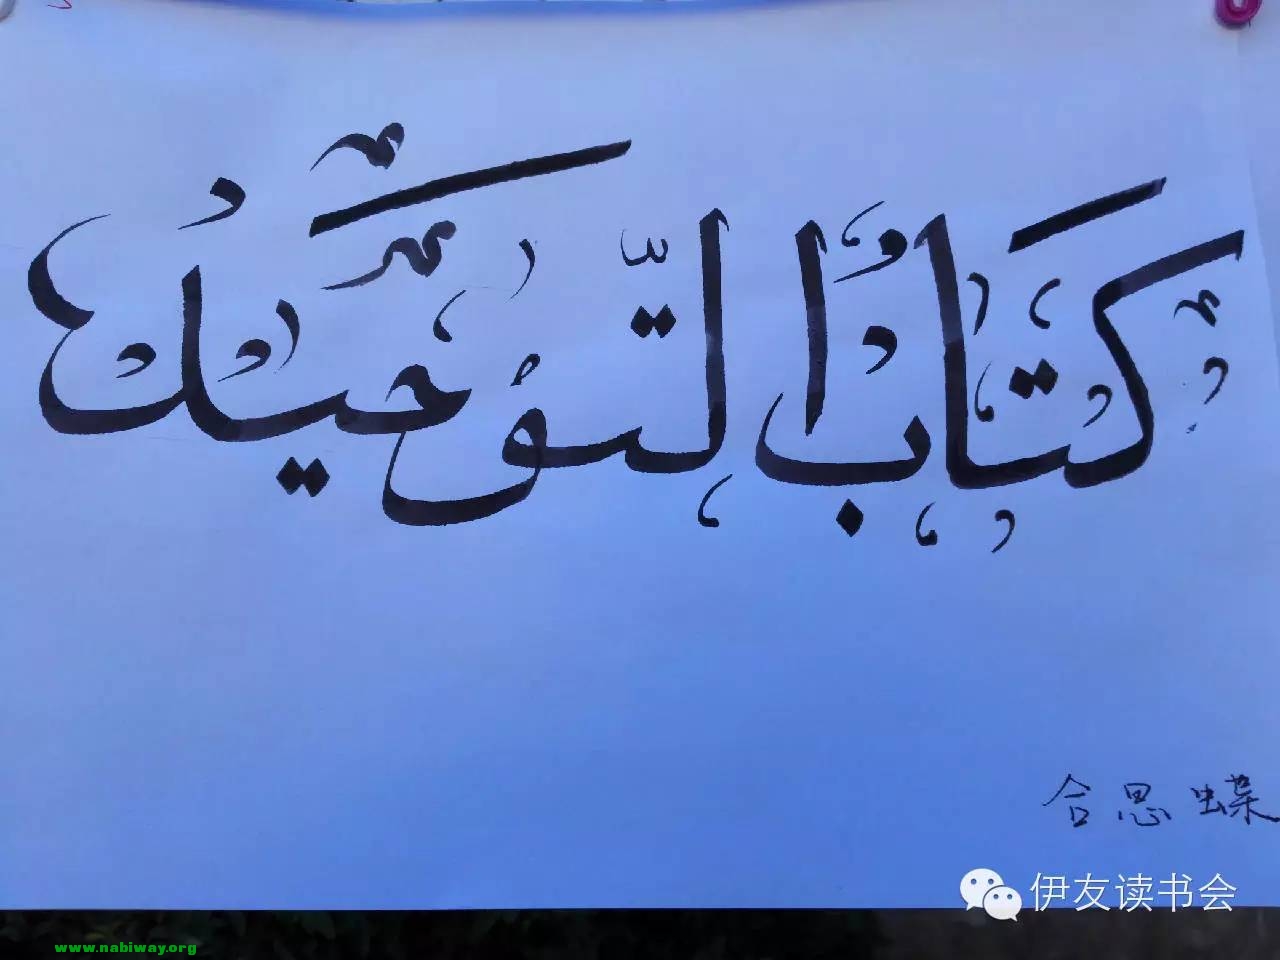 كِتَابُ التَّوْحِيدُ
合思蝶
伊友读书会
www.nabiway.org